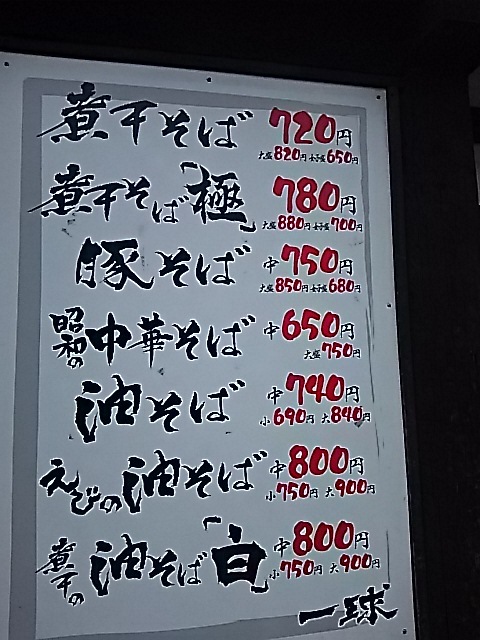 煮干そば 720円
大盛820円 女子盛650円
煮干そば「極」 780円
大盛880円 女子盛700円
豚そば 中750円
大盛850円 女子盛680円
昭和の中華そば 中650円
大盛750円
油そば 中740円
小690円 大840円
えびの油そば 中800円
小750円 大900円
煮干の油そば「白」 中800円
小750円 大900円
一球